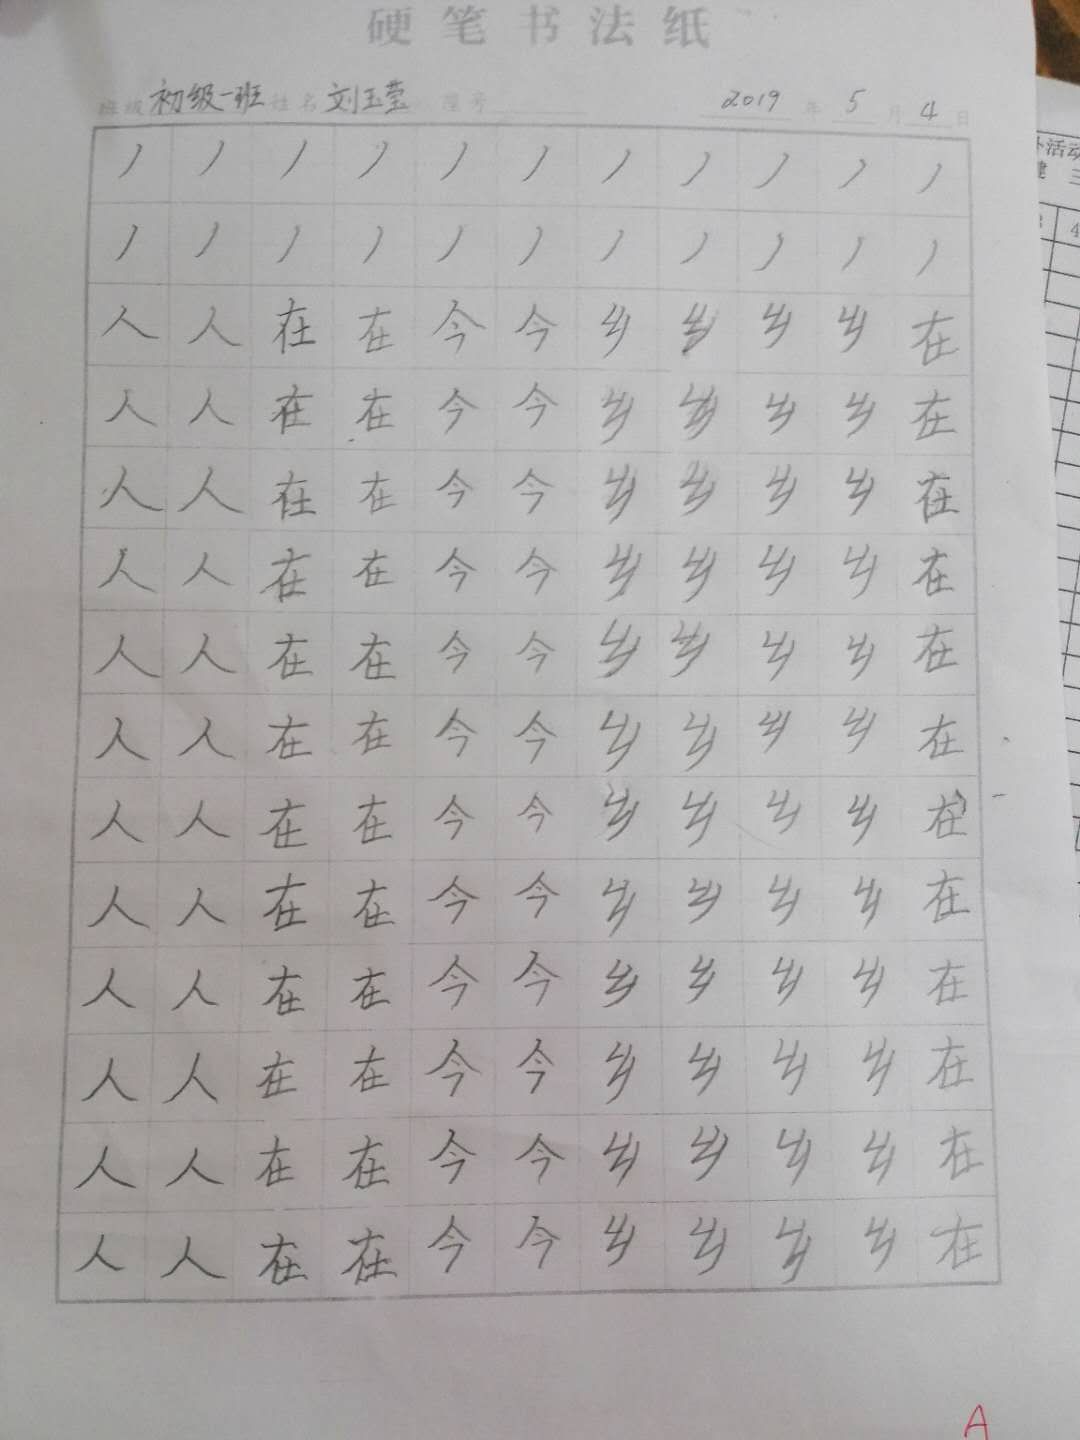 硬笔书法纸
班级 初级一班 姓名 刘玉莹 座号 2019 年 5 月 4 日
丿 丿 丿 丿 丿 丿 丿 丿 丿 丿 丿
丿 丿 丿 丿 丿 丿 丿 丿 丿 丿 丿
人 人 在 在 今 今 乡 乡 乡 乡 在
人 人 在 在 今 今 乡 乡 乡 乡 在
人 人 在 在 今 今 乡 乡 乡 乡 在
人 人 在 在 今 今 乡 乡 乡 乡 在
人 人 在 在 今 今 乡 乡 乡 乡 在
人 人 在 在 今 今 乡 乡 乡 乡 在
人 人 在 在 今 今 乡 乡 乡 乡 在
人 人 在 在 今 今 乡 乡 乡 乡 在
人 人 在 在 今 今 乡 乡 乡 乡 在
人 人 在 在 今 今 乡 乡 乡 乡 在
人 人 在 在 今 今 乡 乡 乡 乡 在
人 人 在 在 今 今 乡 乡 乡 乡 在
A
活动
三
4